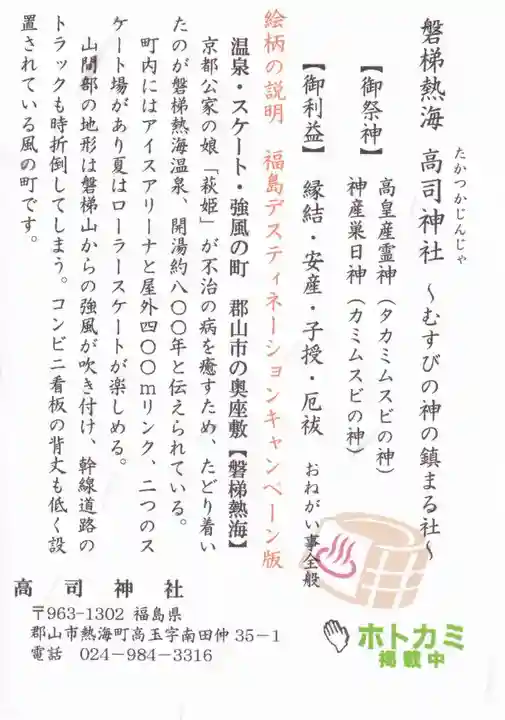 たかつかじんじゃ
磐梯熱海 高司神社 ～むすびの神の鎮まる社～
【御祭神】 高皇産霊神（タカミムスビの神）
神産巣日神（カミムスビの神）
【御利益】 縁結・安産・子授・厄祓 おねがい事全般
絵柄の説明 福島デスティネーションキャンペーン版
温泉・スケート・強風の町 郡山市の奥座敷【磐梯熱海】
京都公家の娘「萩姫」が不治の病を癒すため、たどり着い
たのが磐梯熱海温泉、開湯約八〇〇年と伝えられている。
町内にはアイスアリーナと屋外四〇〇mリンク、二つのス
ケート場があり夏はローラースケートが楽しめる。
山間部の地形は磐梯山からの強風が吹き付け、幹線道路の
トラックも時折倒してしまう。コンビニ看板の背丈も低く設
置されている風の町です。
高司神社
〒963-1302 福島県
郡山市熱海町高玉字南田仲 35－1
電話 024-984-3316
ホトカミ
掲載中